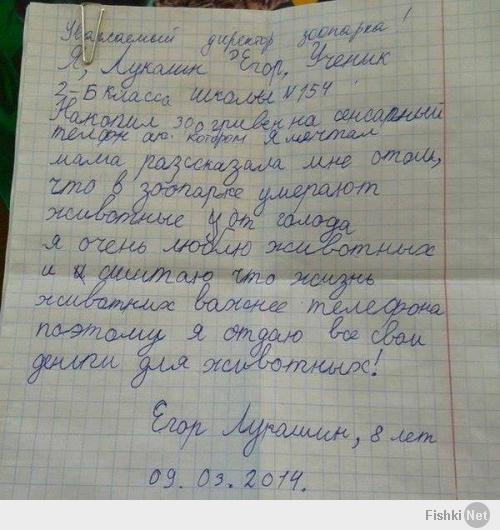 Уважаемый директор зоопарка!
Я, Лукашин Егор, Ученик
2-Б класса школы №154
Накопил 300 гривен на сенсатный
телфон аю котором я мечтал
мама разссказала мне отом,
что в зоопарке умерают
животные у от голода
я очень люблю животных
и считаю что жизнь
животних важнее телефона
поэтому я отдаю все свои
деньги для животных!
Егор Лукашин, 8 лет
09. 03. 2014.
Fishki Net